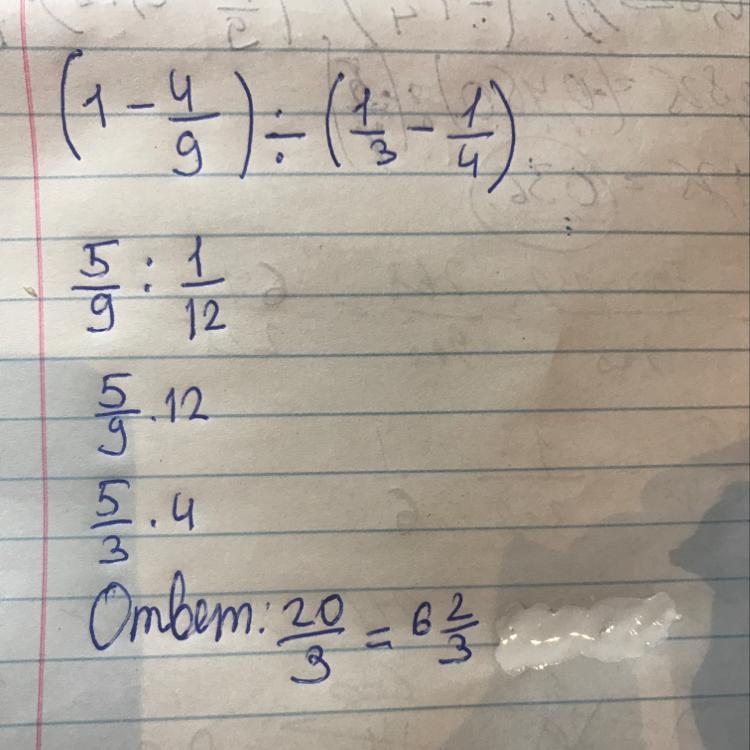 (1 - 4/9) ÷ (1/3 - 1/4)
5/9 : 1/12
5/9 · 12
5/3 · 4
Ответ: 20/3 = 6 2/3